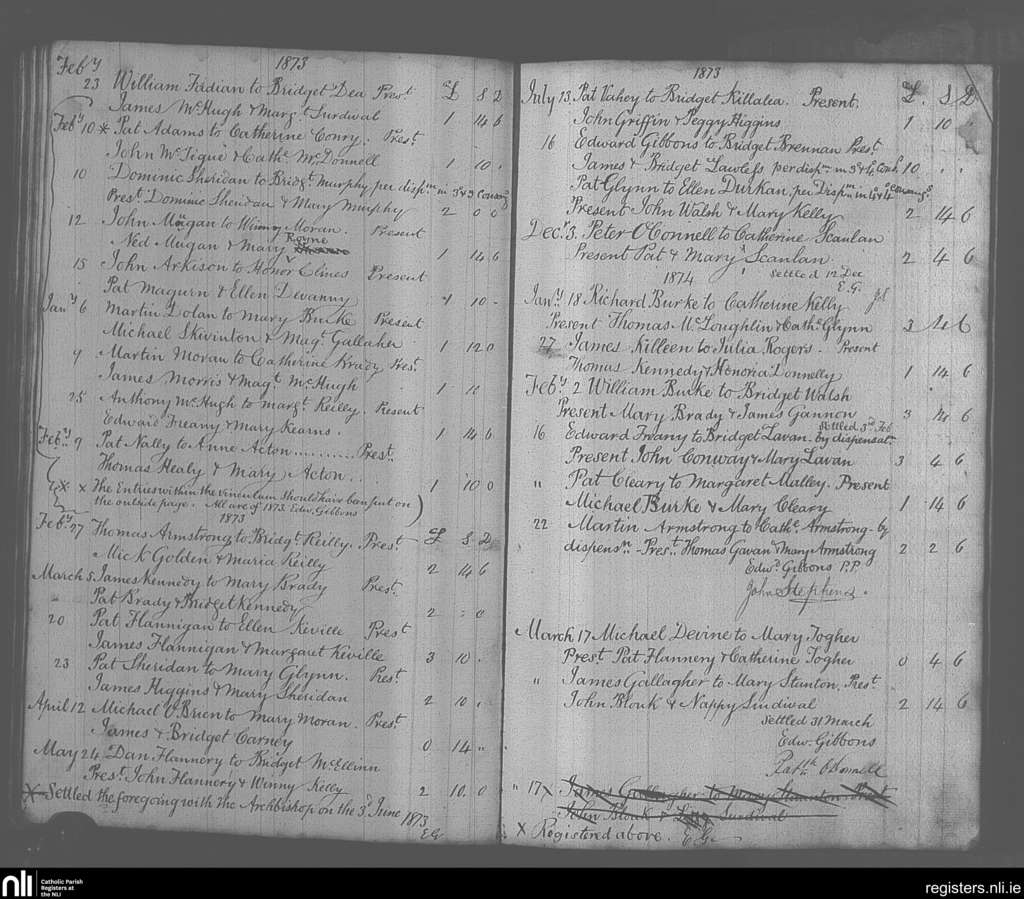 Feby 1873
23 William Fadian to Bridget Dea Prest £ S D
James McHugh & Margt Surdival 1 14 6
Feby 10 × Pat Adams to Catherine Conry. Prest
John McTigue & Cathe McDonnell 1 10 .
10 Dominic Sheridan to Bridgt Murphy per dispm in 3d & 3 Consang
Prest. Dominic Sheridan & Mary Murphy 2 0 0
12 John Mugan to Winny Moran. Present
Ned Mugan & Mary Royne 1 14 6
15 John Arkison to Honor Clines Present
Pat Magurn & Ellen Devanny 1 10 -
Jany 6 Martin Dolan to Mary Burke Present
Michael Skivinton & Magt Gallaher 1 12 0
9 Martin Moran to Catherine Brady Prest
James Morris & Magt McHugh 1 10
25 Anthony McHugh to Margt Reilly. Present
Edward Freany & Mary Kearns. 1 14 6
Feby 9 Pat Nally to Anne Acton........... Prest.
Thomas Healy & Mary Acton... 1 10 0
× × The Entries within the vinculum should have been put on
the outside page. All are of 1873. Edw. Gibbons
1873
Feby 27 Thomas Armstrong to Bridgt Reilly. Prest £ S D
Mick Golden & Maria Reilly 2 14 6
March 5 James Kennedy to Mary Brady Prest
Pat Brady & Bridget Kennedy 2 - 0
20 Pat Flannigan to Ellen Keville Prest
James Flannigan & Margaret Keville 3 10 .
23 Pat Sheridan to Mary Glynn. Prest.
James Higgins & Mary Sheridan 2 10 .
April 12 Michael O'Brien to Mary Moran. Prest
James & Bridget Carney 0 14 "
May 24 Dan Flannery to Bridget McElinn
Prest. John Flannery & Winny Kelly 2 10 0
× Settled the foregoing with the Archbishop on the 3d June 1873
E.G.
1873
July 13 Pat Vahey to Bridget Killalea. Present. £ S D
John Griffin & Peggy Higgins 1 10
16 Edward Gibbons to Bridget Brennan Prest
James & Bridget Lawless per dispm in 3d & 4 Cons 10 . .
Pat Glynn to Ellen Durkan, per Dispm in 4 & 4 Consangs
Present John Walsh & Mary Kelly 2 14 6
Decr 3. Peter O'Connell to Catherine Scanlan
Present Pat & Mary Scanlan 2 4 6
1874 Settled 12 Dec
E.G.
Jany 18 Richard Burke to Catherine Kelly
Present Thomas McLoughlin & Cathe Glynn 3 4 6
27 James Killeen to Julia Rogers. Present
Thomas Kennedy & Honoria Donnelly 1 14 6
Feby 2 William Burke to Bridget Walsh
Present Mary Brady & James Gannon 3 14 6
Settled 3d Feb
16 Edward Freany to Bridget Lavan. by dispensatn
Present John Conway & Mary Lavan 3 4 6
" Pat Cleary to Margaret Malley. Present
Michael Burke & Mary Cleary 1 14 6
22 Martin Armstrong to Cathe Armstrong - by
dispensn - Prest. Thomas Gavan & Mary Armstrong 2 2 6
Edwd Gibbons P.P.
John Stephens.
March 17 Michael Devine to Mary Togher
Prest. Pat Flannery & Catherine Togher 0 4 6
" James Gallagher to Mary Stanton. Prest.
John Blouk & Nappy Surdival 2 14 6
Settled 31 March
Edw. Gibbons
Patk O'Donnell
" 17 × James Gallagher to Mary Stanton Prest
John Blouk & Surdival
× Registered above. E.G.
nli Catholic Parish
Registers at
the NLI
registers.nli.ie